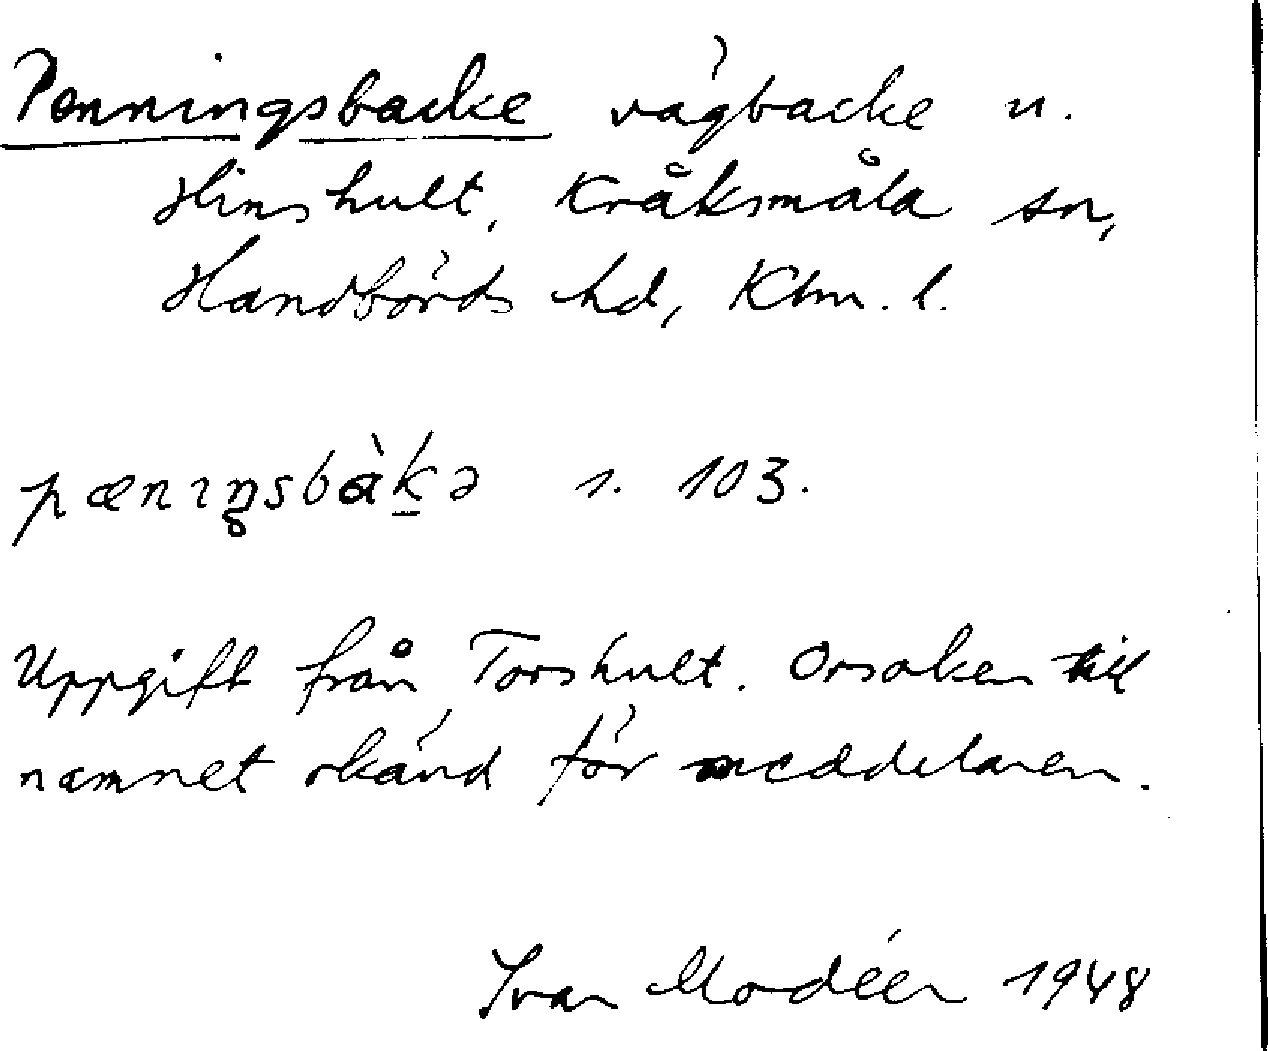 Penningsbacke vägbacke u.
Hinshult, Kråksmåla sn,
Handbörds hd, Klm. l.
pænıŋsbàkə s. 103.
Uppgift från Torshult. Orsaken till
namnet okänd för meddelaren.
Ivar Modéer 1948